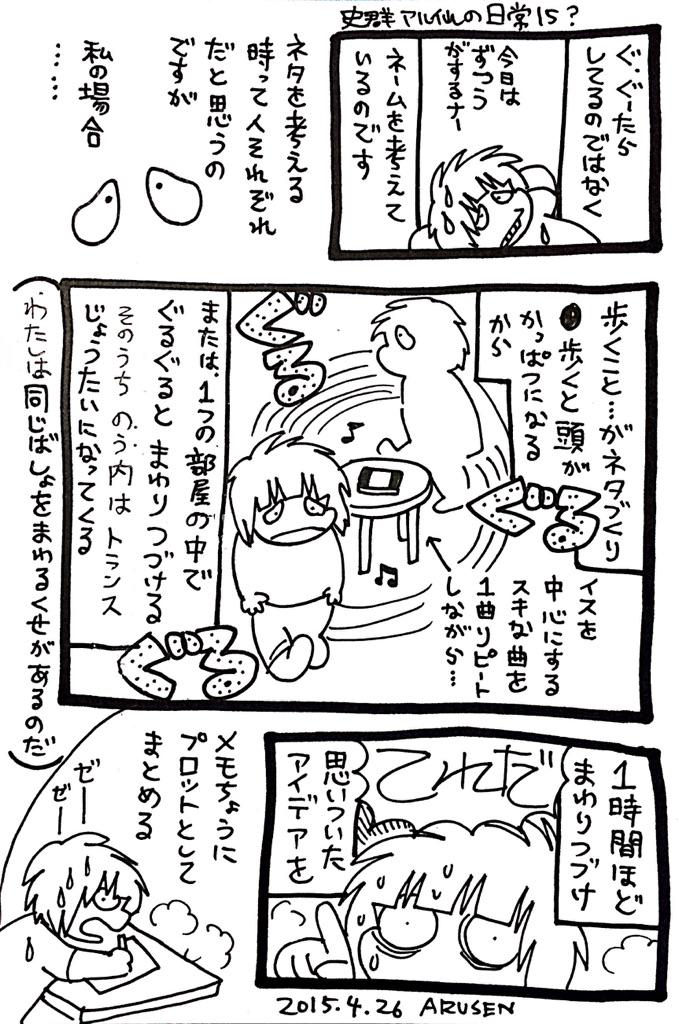 史群アル仙の日常15?
ぐ、ぐーたら
してるのではなく
今日は
ずつう
がするナー
ネームを考えて
いるのです
ネタを考える
時って人それぞれ
だと思うの
ですが
私の場合
……
歩くこと…がネタづくり
歩くと頭が
かっぱつになる
から
ぐる
ぐる
ぐる
イスを
中心にする
スキな曲を
1曲リピート
しながら…
または、1つの部屋の中で
ぐるぐるとまわりつづける
そのうちのう内はトランス
じょうたいになってくる
わたしは同じばしょをまわるくせがあるのだ
1時間ほど
まわりつづけ
これだ
思いついた
アイデアを
メモちょうに
プロットとして
まとめる
ゼー
ゼー
2015.4.26 ARUSEN